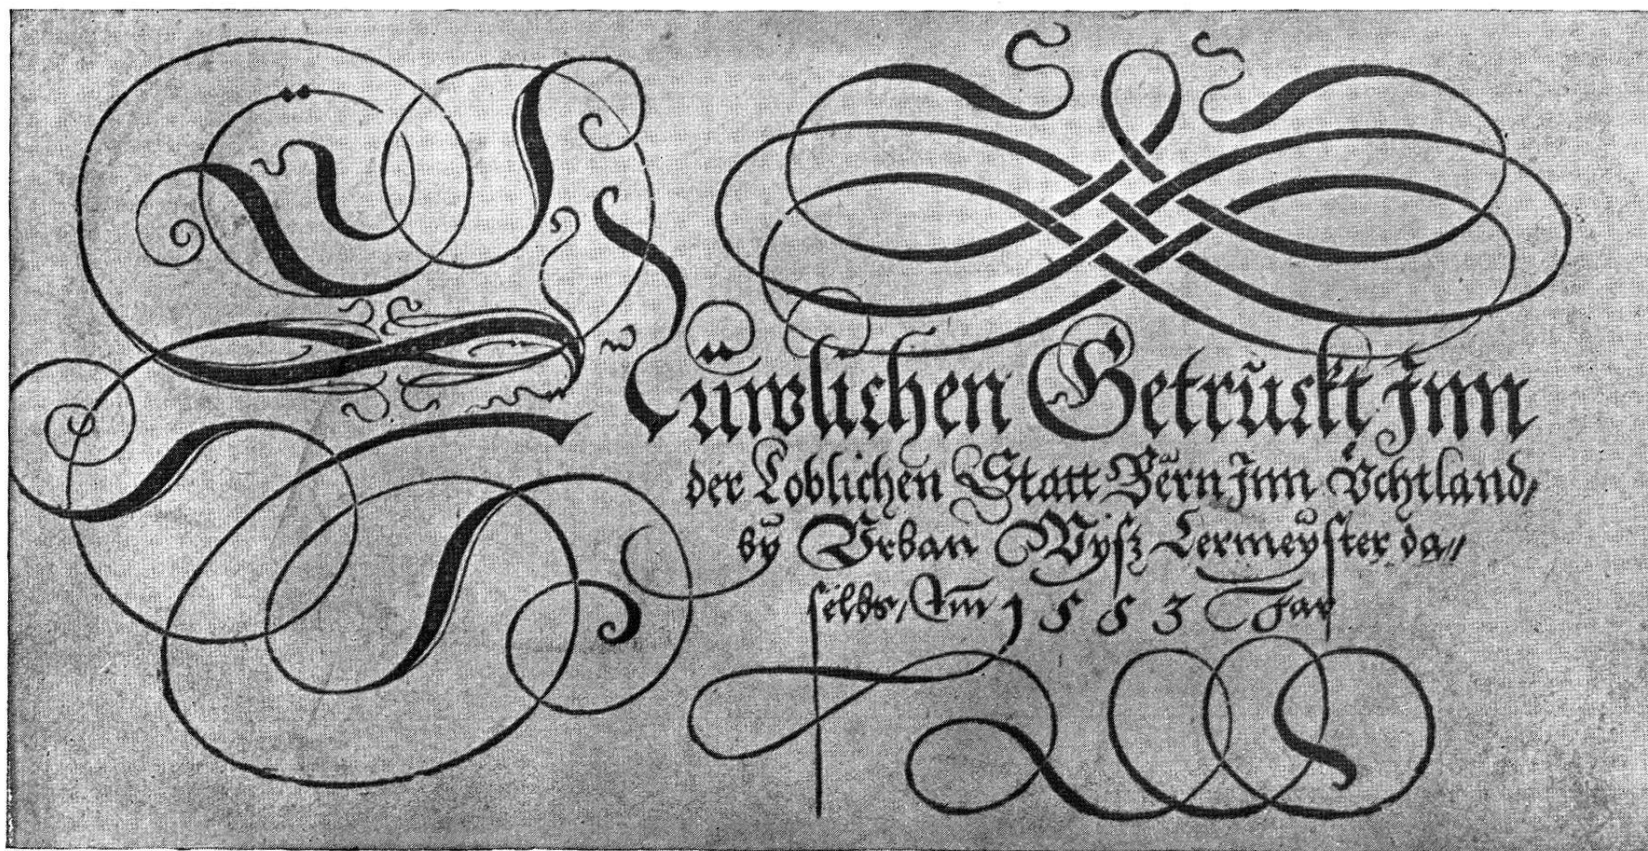 Nüwlichen Getruckt Jnn
der Loblichen Statt Bern Jnn Vchtland,
by Vrban Wyß Lermeyster da//
selbs, Am 1553 Jar